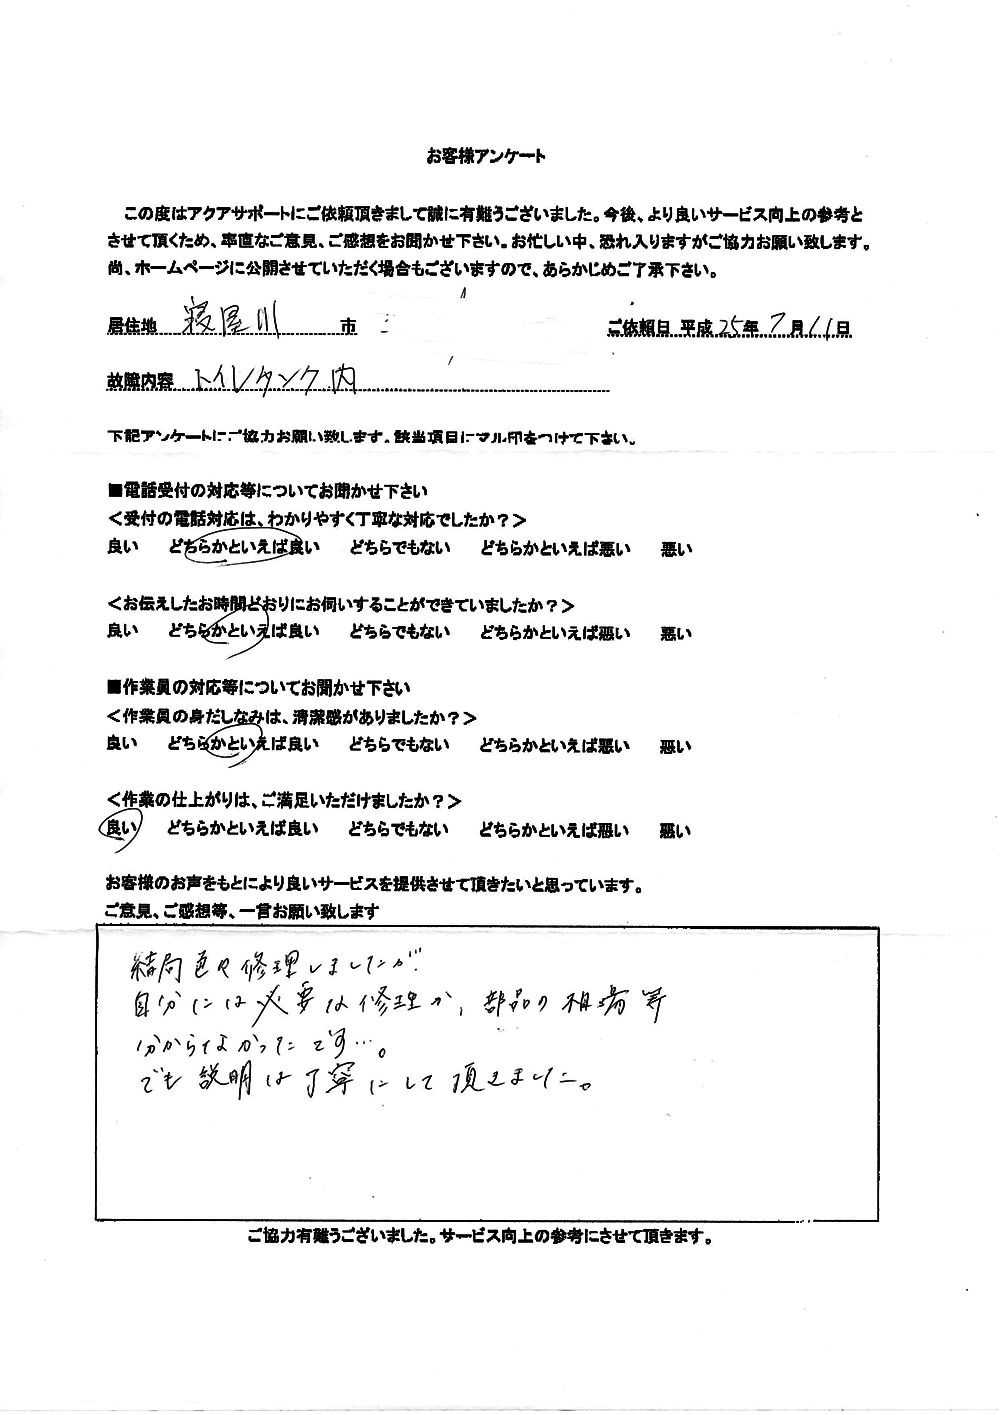 お客様アンケート
この度はアクアサポートにご依頼頂きまして誠に有難うございました。今後、より良いサービス向上の参考と
させて頂くため、率直なご意見、ご感想をお聞かせ下さい。お忙しい中、恐れ入りますがご協力お願い致します。
尚、ホームページに公開させていただく場合もございますので、あらかじめご了承下さい。
居住地 寝屋川 市 ご依頼日 平成25年7月11日
故障内容 トイレタンク内
下記アンケートにご協力お願い致します。該当項目にマル印をつけて下さい。
■電話受付の対応等についてお聞かせ下さい
＜受付の電話対応は、わかりやすく丁寧な対応でしたか？＞
良い どちらかといえば良い どちらでもない どちらかといえば悪い 悪い
＜お伝えしたお時間どおりにお伺いすることができていましたか？＞
良い どちらかといえば良い どちらでもない どちらかといえば悪い 悪い
■作業員の対応等についてお聞かせ下さい
＜作業員の身だしなみは、清潔感がありましたか？＞
良い どちらかといえば良い どちらでもない どちらかといえば悪い 悪い
＜作業の仕上がりは、ご満足いただけましたか？＞
良い どちらかといえば良い どちらでもない どちらかといえば悪い 悪い
お客様のお声をもとにより良いサービスを提供させて頂きたいと思っています。
ご意見、ご感想等、一言お願い致します
結局色々修理しましたが
自分には必要な修理か、部品の相場等
分からなかったです…。
でも説明は丁寧にして頂きました。
ご協力有難うございました。サービス向上の参考にさせて頂きます。